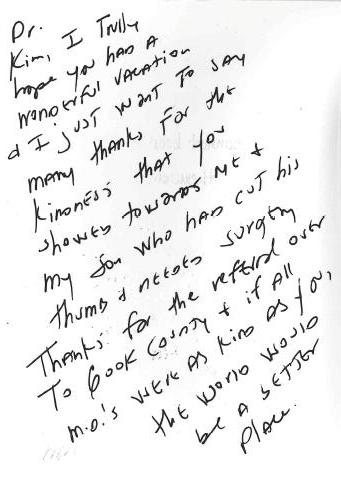 Dr.
Kim, I Trully
hope you had a
wonderful vacation
& I just want to say
many thanks for the
kindness that you
showed towards me &
my son who had cut his
thumb & needed surgery
Thanks for the referal over
To Cook County & if all
m.d.'s were as kind as you,
the world would
be a better
place.